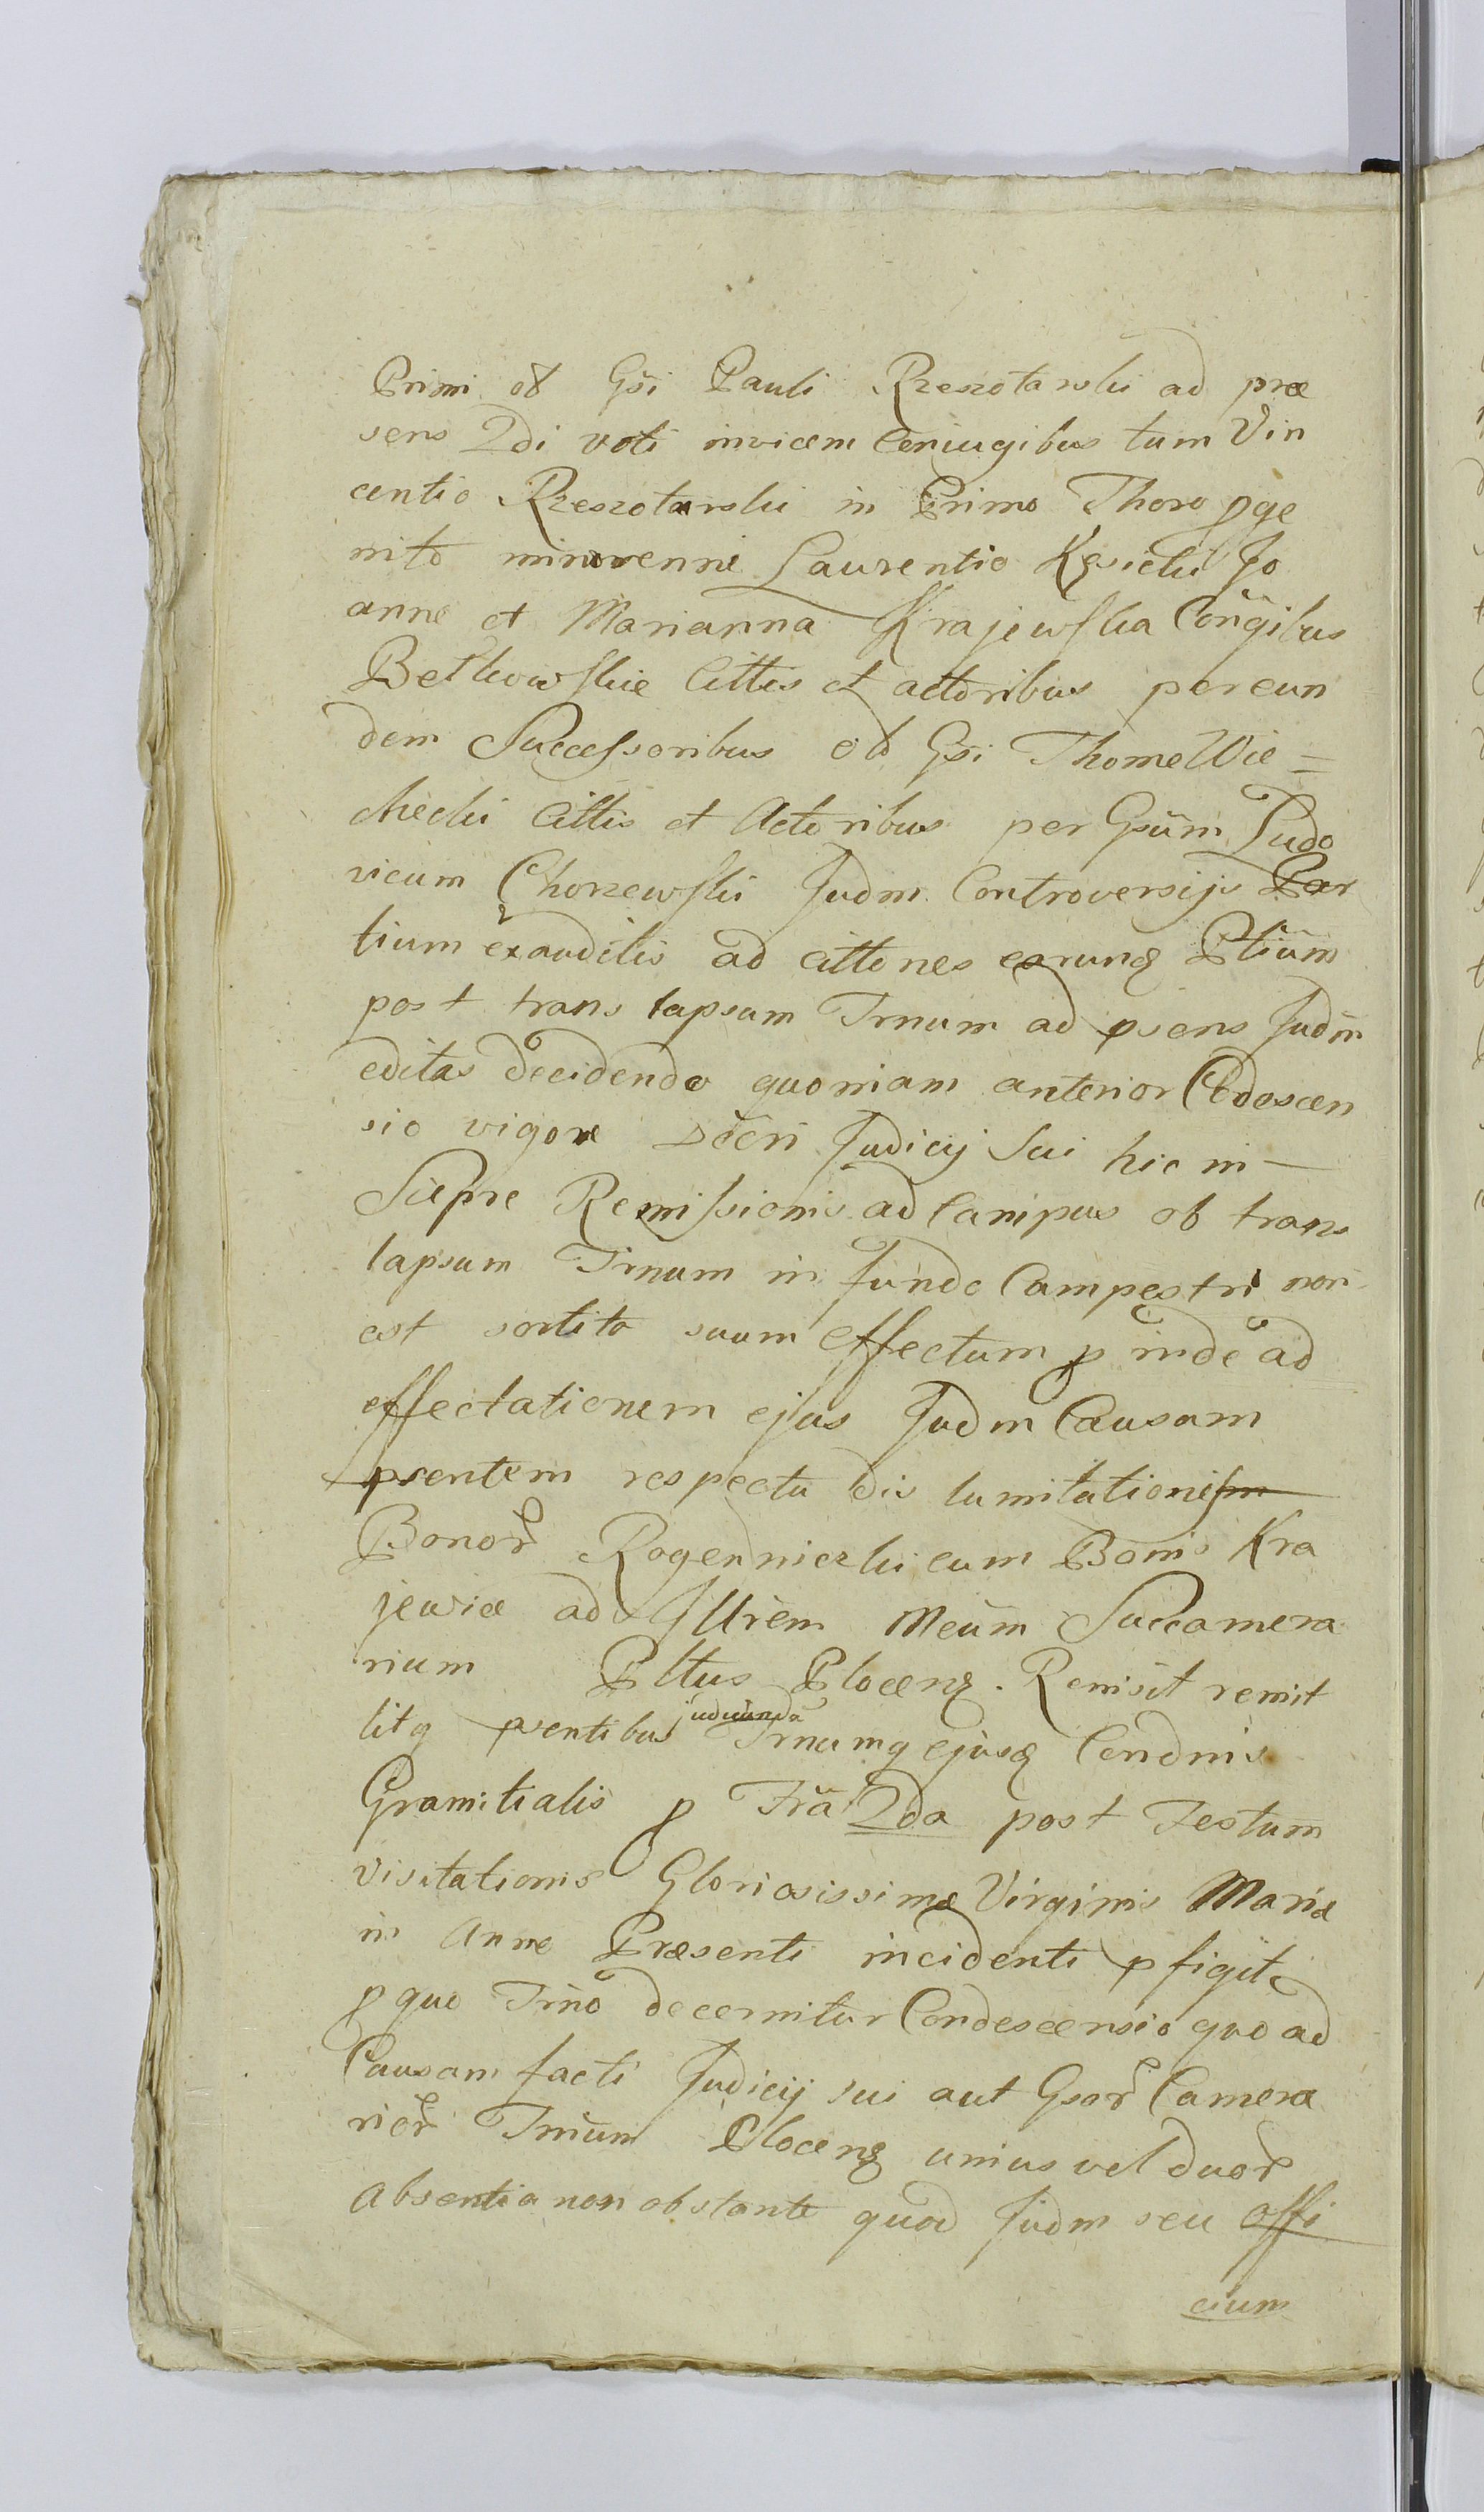 Primi ob Gsi Pauli Rzeszotarski ad præ
sens 2di voti invicem Coniugibus tum Vin
centio Rzeszotarski in Primo Thoro pge
nito minorenni Laurentio Kęsicki Jo
anne et Marianna Krajewska Cõngibus
Betkowskie Cittis et actoribus per eun
dem Successoribus ob Gsi Thome Wie =
checki Cittis et Actoribus per Gsum Ludo
vicum Chorzewski Judm Controversijs Par
tium exauditis ad cittones earunq Ptium
post trans lapsum Trnum ad psens Judm
editas decidendo quoniam anterior Cõdescen
sio vigore Dècri Judicij Sui hic in —
Remissionis ad Campus ob trans
lapsum Trnum in fundo Campestri non
est sortita suum effectum p inde ad
effectationem ejus Judm Causam
psentem respectu dis lumitationis
Bonor Rogenniczki cum Bonis Kra
jewice ad Illrem Meum Succamera
rium Pltus Plocenq. Remisit remit
titq psentibus judicanda Trnumq ejusq Condnis
Gramitialis p Fra 2da post Festum
Visitationis Gloriosissimæ Virginis Mariæ
in Anno Præsenti incidenti pfigit
p quo Trnõ decernitur Condescensio quo ad
Causam facti Judicij sui aut Gsor Camera
rior Trium Plocenq unius vel duor
Absentia non obstante quod Judm seu offi
cium